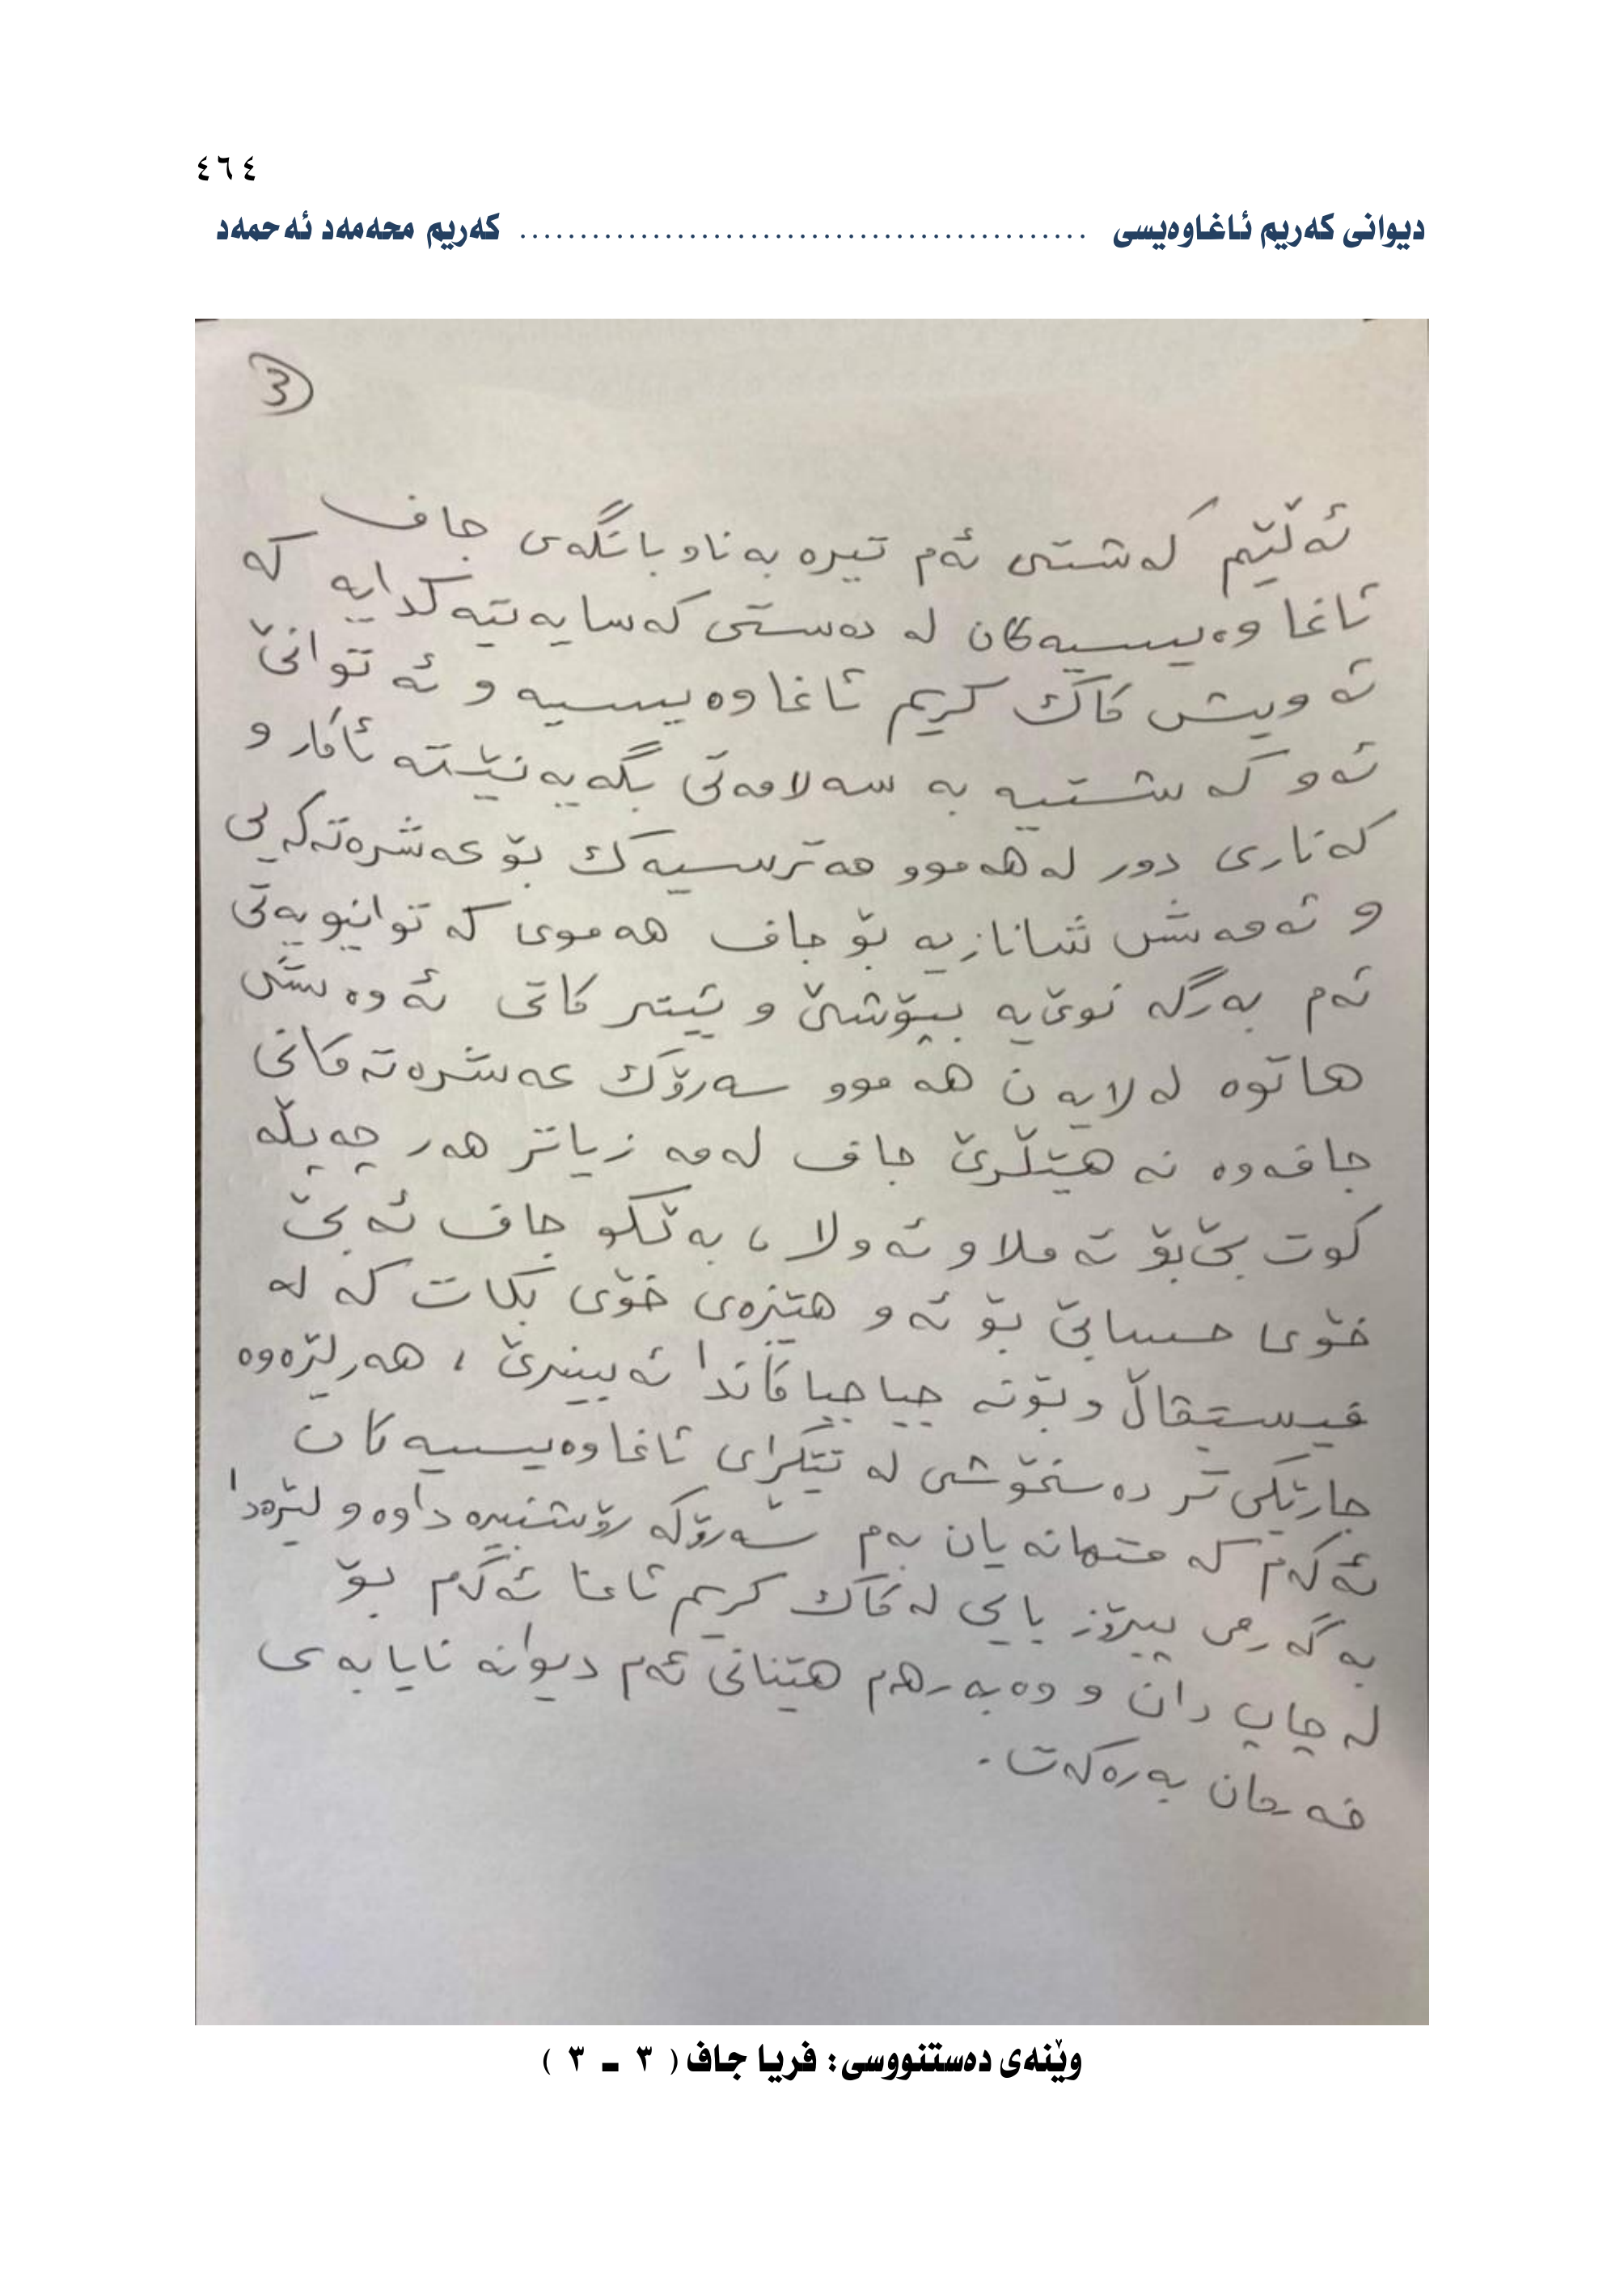 ٤٦٤
دیوانی کەریم ئاغاوەیسی ................................................ کەریم محەمەد ئەحمەد
3
ئەڵێم کەشتی ئەم تیرە بەناوبانگەی جاف
ئاغاوەیسیەکان لە دەستی کەسایەتیەکدایە کە
ئەویش کاک کریم ئاغاوەیسیە و ئەتوانێ
ئەو کەشتیە بە سەلامەتی بگەیەنێتە ئاکار و
کەناری دور لەهەموو مەترسیەک بۆ عەشرەتەکەیی
و ئەمەش شانازیە بۆ جاف هەموی کە توانیویەتی
ئەم بەرگە نوێیە بپۆشێ و ئیتر کاتی ئەوەشی
هاتوە لەلایەن هەموو سەرۆک عەشرەتەکانی
جافەوە نەهێڵرێ جاف لەمە زیاتر هەر چەپڵە
کوت بێ بۆ ئەملاو ئەولا، بەڵکو جاف ئەبێ
خۆی حسابێ بۆ ئەو هێزەی خۆی بکات کە لە
فیستیڤاڵ و بۆنە جیاجیاکاندا ئەبینرێ، هەرلێرەوە
جارێکی تر دەسخۆشی لە تێکڕای ئاغاوەیسیەکان
ئەکەم کە متمانەیان بەم سەرۆکە رۆشنبیرە داوە و لێرەدا
بەگەرمی پیرۆزبایی لە کاک کریم ئاغا ئەکەم بۆ
لەچاپ دان و وەبەرهەم هێنانی ئەم دیوانە نایابەی
فەرمان بەرەکەت.
وێنەی دەستنووسی: فریا جاف ( ٣ ـ ٣ )